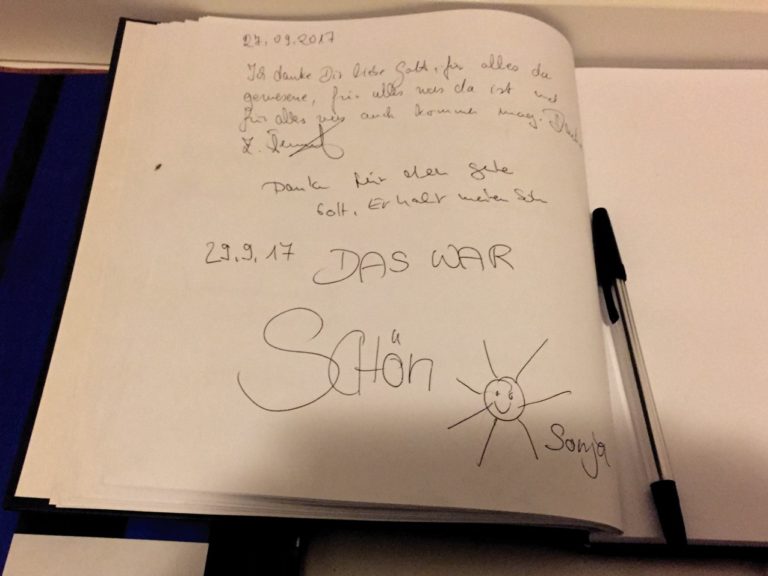 27.09.2017
Ich danke Dir liebe Gott, für alles da
gewesene, für alles was da ist und
für alles was auch kommen mag.
Z.
Danke für alles gute
Gott. Erhalt meinen
29.9.17 DAS WAR
SCHÖN
Sonja